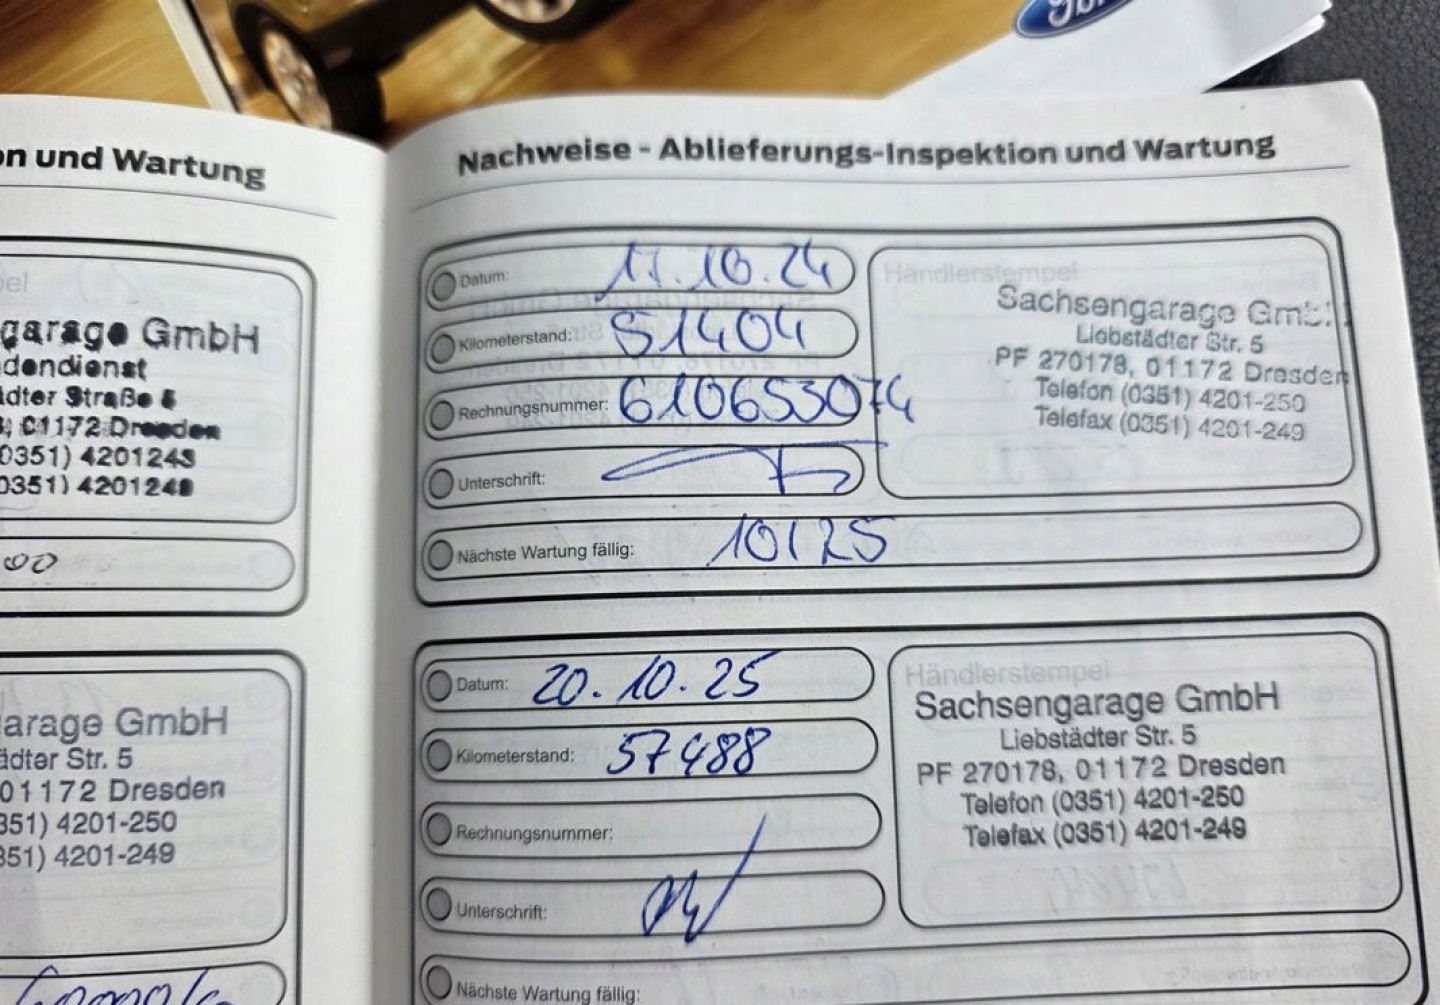 Ford
on und Wartung
garage GmbH
dendienst
ädter Straße 5
01172 Dresden
0351) 4201245
0351) 4201249
00
arage GmbH
ädter Str. 5
01172 Dresden
351) 4201-250
351) 4201-249
Nachweise - Ablieferungs-Inspektion und Wartung
Datum: 17.10.24
Kilometerstand: 51404
Rechnungsnummer: 610653074
Unterschrift:
Nächste Wartung fällig: 10/25
Händlerstempel
Sachsengarage GmbH
Liebstädter Str. 5
PF 270178, 01172 Dresden
Telefon (0351) 4201-250
Telefax (0351) 4201-249
Datum: 20.10.25
Kilometerstand: 57488
Rechnungsnummer:
Unterschrift:
Nächste Wartung fällig:
Händlerstempel
Sachsengarage GmbH
Liebstädter Str. 5
PF 270178, 01172 Dresden
Telefon (0351) 4201-250
Telefax (0351) 4201-249